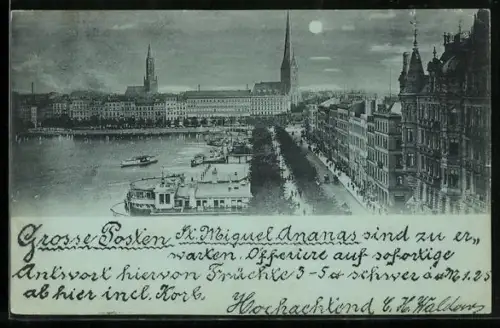 Grosse Posten St. Miguel Ananas sind zu er„
warten. Offeriere auf sofortige
Antwort hiervon Früchte 3-5 schwer à M 1.25
ab hier incl. Korb.
Hochachtend C. H.